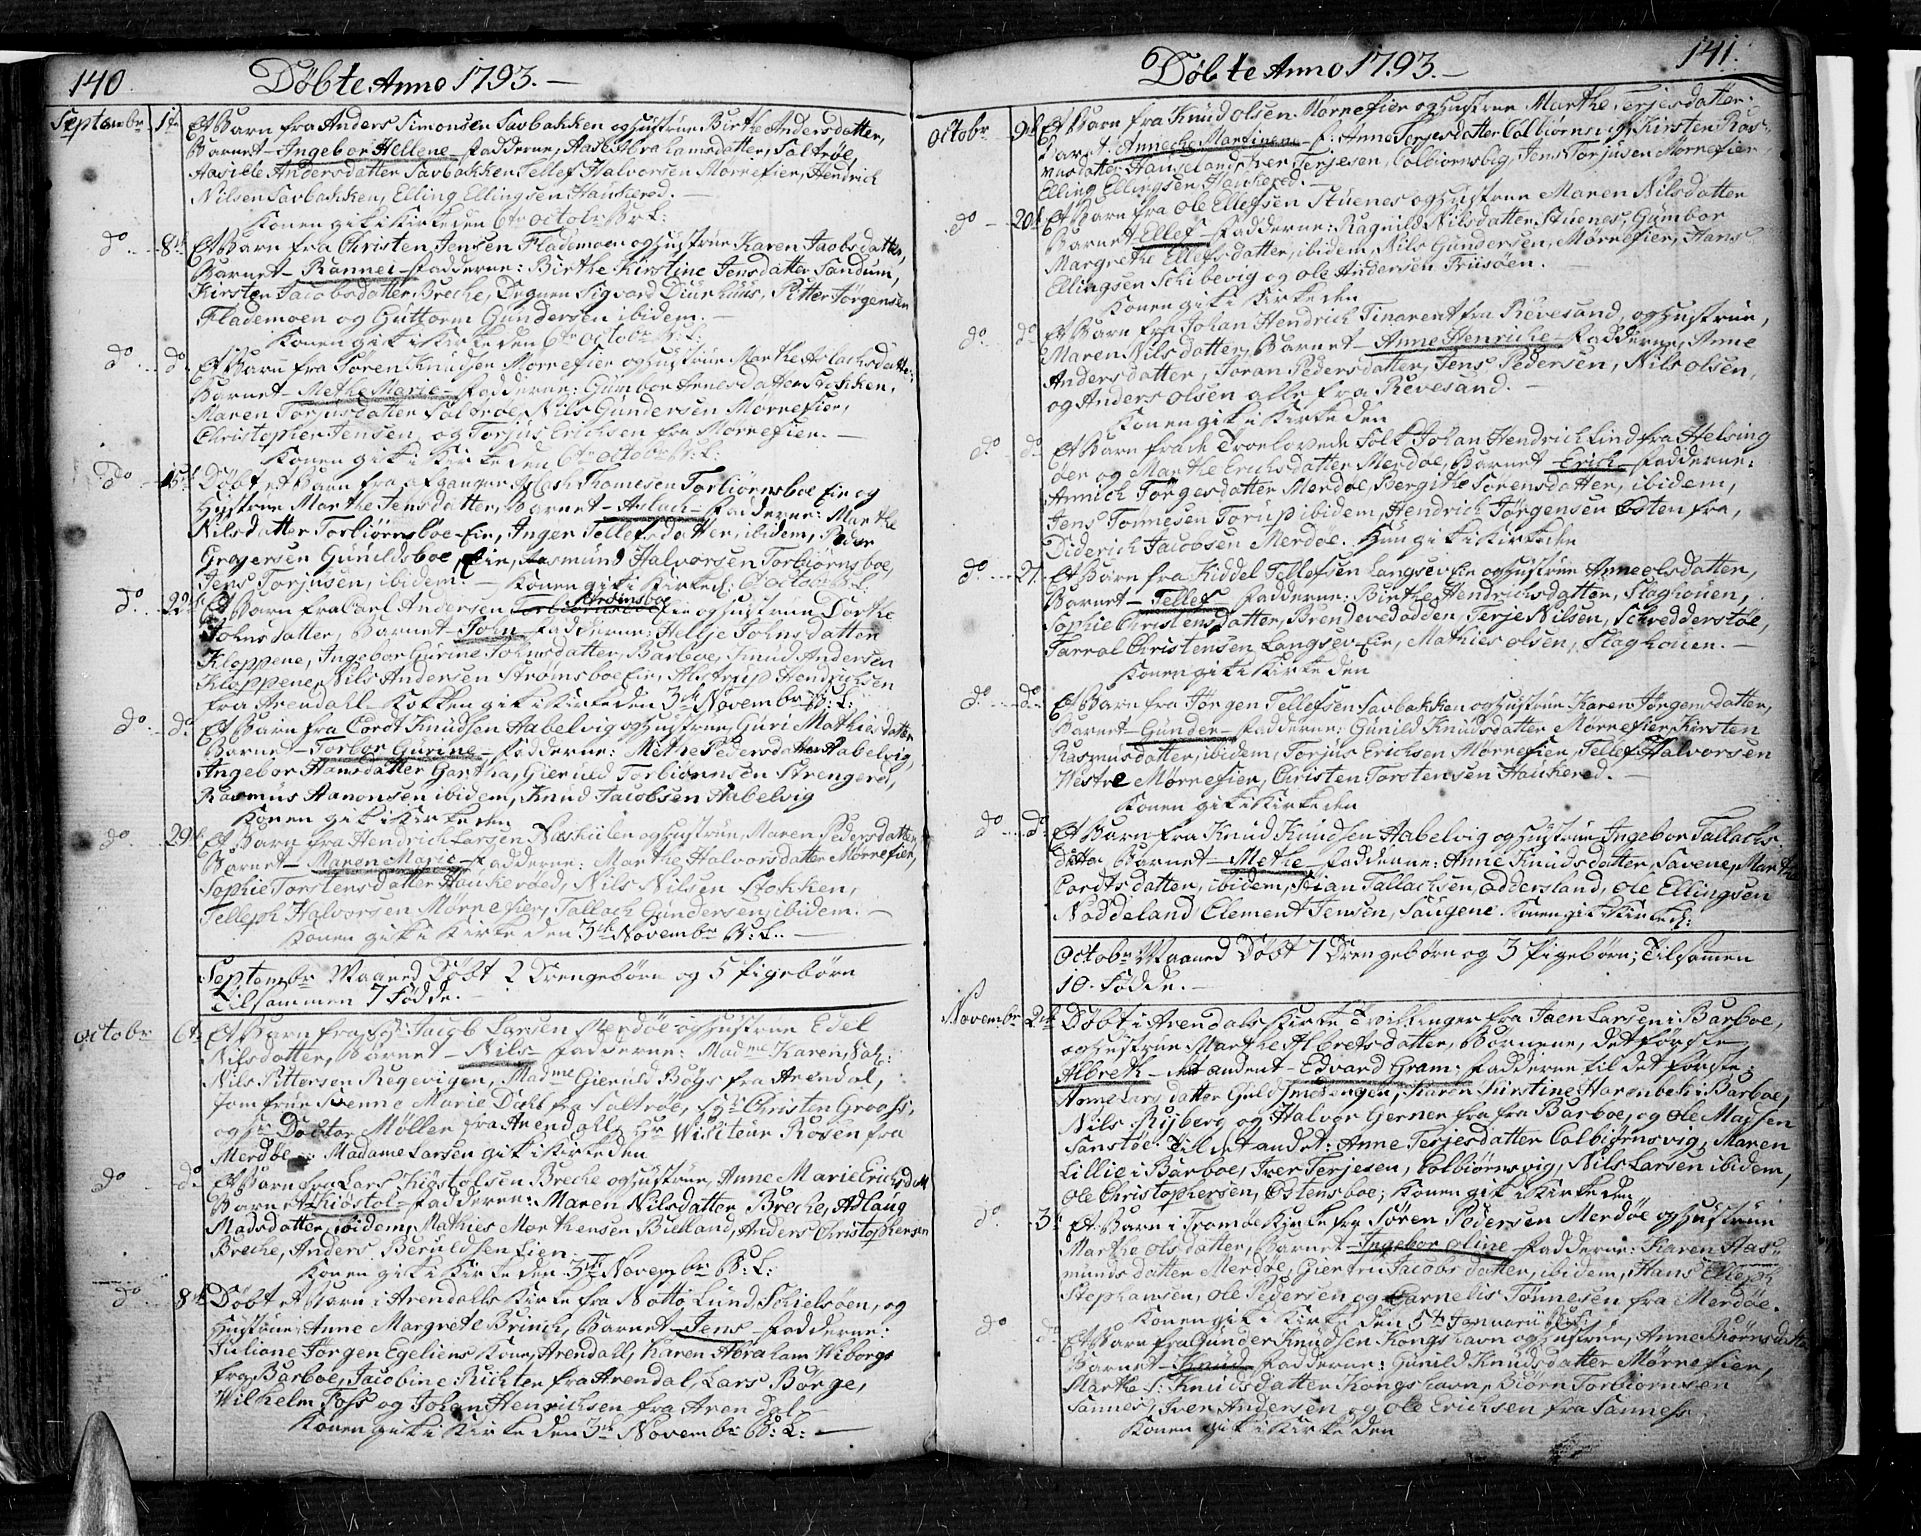 140.
Döbte Anno 1793. —
Septembr 1te Et Barn fra Anders Simonsen Savbakken og Hustrue Birthe Andersdatter,
Barnet — Ingebor Hellene — Fadderne, Aase Abrahamsdatter, Saltröe,
Andersdatter Savbakken, Tellef Halvorsen Mörnefier, Hendrich
Nilsen Savbakken, Elling Ellingsen Haukered. —
Konen gik i Kirke den 6te octobr B: L:
do — 8de Et Barn fra Christen Jensen Flademoen og Hustrue Karen Jacobsdatter,
Barnet — Rannei — Fadderne: Birthe Kirstine Jensdatter Sandum,
Kirsten Jacobsdatter Breche, Degnen Sigvard Diurhuus, Pitter Jörgensen
Flademoen og Guttorm Gundersen ibidem. —
Konen gik i Kirke den 6te octobr B: L:
do — do Et Barn fra Sören Knudsen Mörnefier og Hustrue Marthe Aslachsdatter,
Barnet — Methe Marie — Fadderne: Gumbor Arnesdatter Stokken,
Maren Torjusdatter Saltröe, Nils Gundersen Mörnefier,
Christopher Jensen, og Torjus Erichsen fra Mörnefier. —
Konen gik i Kirke den 6te octobr B: L:
do — 15de Döbt et Barn fra afgangne Aslach Thomesen Torbiörnsboe Eie og
Hustrue Marthe Jensdatter, Barnet — Aslach — Fadderne: Marthe
Nilsdatter Torbiörnsboe Eie, Inger Tellefsdatter, ibidem, Peder
Gregersen Gunildsboe Eie, Aasmund Halvorsen Torbiörnsboe,
Jens Torjusen, ibidem. — Konen gik i Kirke d: 6 octobr B: L:
do — 22de Et Barn fra Carl Andersen Strömsboe Eie og Hustrue Dorthe
Johnsdatter, Barnet — John — Fadderne: Helje Johnsdatter
Kloppene, Ingebor Gurine Johnsdatter, Barboe, Knud Andersen
Kloppene, Nils Andersen Strömsboe Eie, Hendrichsen
fra Arendahl. Konen gik i Kirke den 3de Novembr B: L:
do — do Et Barn fra Cordt Knudsen Habelvig og Hustrue Guri Mathiesdatter
Barnet — Torbor Gurine — Fadderne: Methe Pedersdatter Habelvig,
Ingebor Hansdatter Gartha, Gieruld Torbiörnsen Strengered,
Rasmus Aanonsen ibidem, Knud Jacobsen Habelvig
Konen gik i Kirke den
do — 29de Et Barn fra Hendrich Larsen Neskilen og Hustrue, Maren Pedersdatter,
Barnet — Maren Marie — Fadderne: Marthe Halvorsdatter Mörnefier,
Sophie Torstensdatter Haukeröed, Nils Nilsen Stokken,
Telleph Halvorsen Mörnefier, Tallach Gundersen, ibidem. —
Konen gik i Kirke den 3de Novembr B: L: —
Septembr Maaned Döbt 2 Drengebörn og 5 Pigebörn
Tilsammen 7 Födde. —
Octobr 6te Et Barn fra Sr: Jacob Larsen Merdöe og Hustrue Edel
Nilsdatter, Barnet — Nils — Fadderne: Madme Karen,
Nils Pittersen Regevigen, Madme Gieruld Bögs fra Arendal,
Jomfrue Benne Marie Dahl fra Saltröe, Hr: Christen Grooss,
og Hr: Doctor Möller fra Arendall, Hr Visiteur Rosen fra
Merdöe. Madame Larsen gik i Kirke den
do — do Et Barn fra Lars Kiöstolsen Breche og Hustrue, Anne Marie Erichsdatt
Barnet — Kiöstol — Fadderne: Maren Nilsdatter Breche, Adlaug
Madsdatter, ibidem, Mathies Morthensen Bieland, Anders Christophersen
Breche, Anders Beruldsen Eien.
Konen gik i Kirke den 3de Novembr B: L:
do — 8de Döbt et Barn i Arendahls Kirke fra Notto Lund, Schielsöen, og
Hustrue, Anne Margrete Brinch, Barnet — Jens — Fadderne:
Juliane Jörgen Egeliens Kone, Arendall, Karen Abraham Wiborgs
fra Barboe, Jacobine Richter fra Arendal, Lars Börge,
Wilhelm Foss og Johan Henrichsen fra Arendal,
Konen gik i Kirke den 3de Novembr B: L: —
141.
Döbte Anno 1793. —
Octobr 9de Et Barn fra Knud Olsen Mörnefier og Hustrue Marthe Terjesdatter:
Barnet Annecke Martinene — F: Anne Terjesdatter Colbiörnsvig, Kirsten Ras-
musdatter Haugeland, Iver Terjesen, Colbiörnsvig, Jens Torjusen Mörnefier
Elling Ellingsen Haukered. —
do — 20de Et Barn fra Ole Ellefsen Stuenes og Hustrue Maren Nilsdatter
Barnet — Ellef — Fadderne: Ragnild Nilsdatter, Stuenes, Gumbor
Margrethe Ellefsdatter, ibidem, Nils Gundersen, Mörnefier, Hans
Ellingsen Schibevig og Ole Andersen Friisöen. —
Konen gik i Kirke den
do — do Et Barn fra Johan Hendrich Tinarent fra Revesand, og Hustrue,
Maren Nilsdatter, Barnet — Anne Henriche — Fadderne, Anne
Andersdatter, Joran Pedersdatter, Jens Pedersen, Nils Olsen,
og Anders Olsen alle fra Revesand. —
Konen gik i Kirke den
do — do Et Barn fra de Troelovede Folk Johan Hendrich Lind fra Helsing
öer og Marthe Erichsdatter Merdöe, Barnet — Erich — Fadderne:
Annich Jörgesdatter Merdöe, Bergithe Sörensdatter, ibidem,
Jens Tönnesen Torup ibidem, Hendrich Jörgensen Östen fra,
Diderich Jacobsen Merdöe. Hun gik i Kirke den
do — 27 Et Barn fra Kiddel Tellefsen Langsev Eie og Hustrue Anne Olsdatter,
Barnet — Tellef — Fadderne: Birthe Hendrichsdatter, Flaghouen,
Sophie Christensdatter, Brendevedodden, Terje Nilsen, Schredderstöe,
Tarral Christensen, Langsev Eie, Mathies Olsen, Flaghouen. —
Konen gik i Kirke den
do — do Et Barn fra Jörgen Tellefsen Savbakken og Hustrue Karen Jörgensdatter,
Barnet — Gunder — Fadderne: Gunild Knudsdatter Mörnefier, Kirsten
Rasmusdatter, ibidem, Torjus Erichsen Mörnefier, Tellef Halvorsen
Westre Mörnefier, Christen Torstensen Haukered. —
Konen gik i Kirke den
do — do Et Barn fra Knud Knudsen Habelvig og Hustrue Ingebor Tallachs-
datter Barnet — Methe — Fadderne: Anne Knudsdatter, Savene, Marthe
Cordtsdatter, ibidem, Stian Tallachsen, Oddersland, Ole Ellingsen
Noddeland, Clement Jensen, Saugene. Konen gik i Kirke d:
Octobr Maaned Döbt 7 Drengebörn og 3 Pigebörn; Tilsamen
10 Födde. —
Novembr 2de Döbt i Arendals Kirke Tvillinger fra Jaen Larsen i Barboe,
og Hustrue Marthe Albretsdatter, Börnene, det förste
Albreth — det andent — Edvard Gram: Fadderne til det förste:
Anne Larsdatter Guldsmedengen, Karen Kirstine Harenbek i Barboe,
Nils Ryberg og Halvor Gerner fra Barboe, og Ole Madsen
Sanstöe. Til det andet: Anne Terjesdatter Colbiörnsvig, Maren
Lillie i Barboe, Iver Terjesen, Colbiörnsvig, Nils Larsen ibidem,
Ole Christophersen, Östensboe; Konen gik i Kirke den
do 3die Et Barn i Tromöe Kirke fra Sören Pedersen Merdöe og Hustrue
Marthe Olsdatter, Barnet — Ingebor Oline — Fadderne: Karen Aas-
mundsdatter Merdöe, Giertru Jacobsdatter, ibidem, Hans Elleph
Stephansen, Ole Pedersen og Cornelis Tönnesen fra Merdöe.
Konen gik i Kirke den 5te Januarii B: L:
do do Et Barn fra Gunder Knudsen Kongshavn og Hustrue, Anne Biörnsdatter
Barnet — Knud — Fadderne: Gunild Knudsdatter Mörnefier,
Marthe S: Knudsdatter Kongshavn, Biörn Torbiörnsen
Sannes, Iver Andersen og Ole Erichsen fra Sanness.
Konen gik i Kirke den